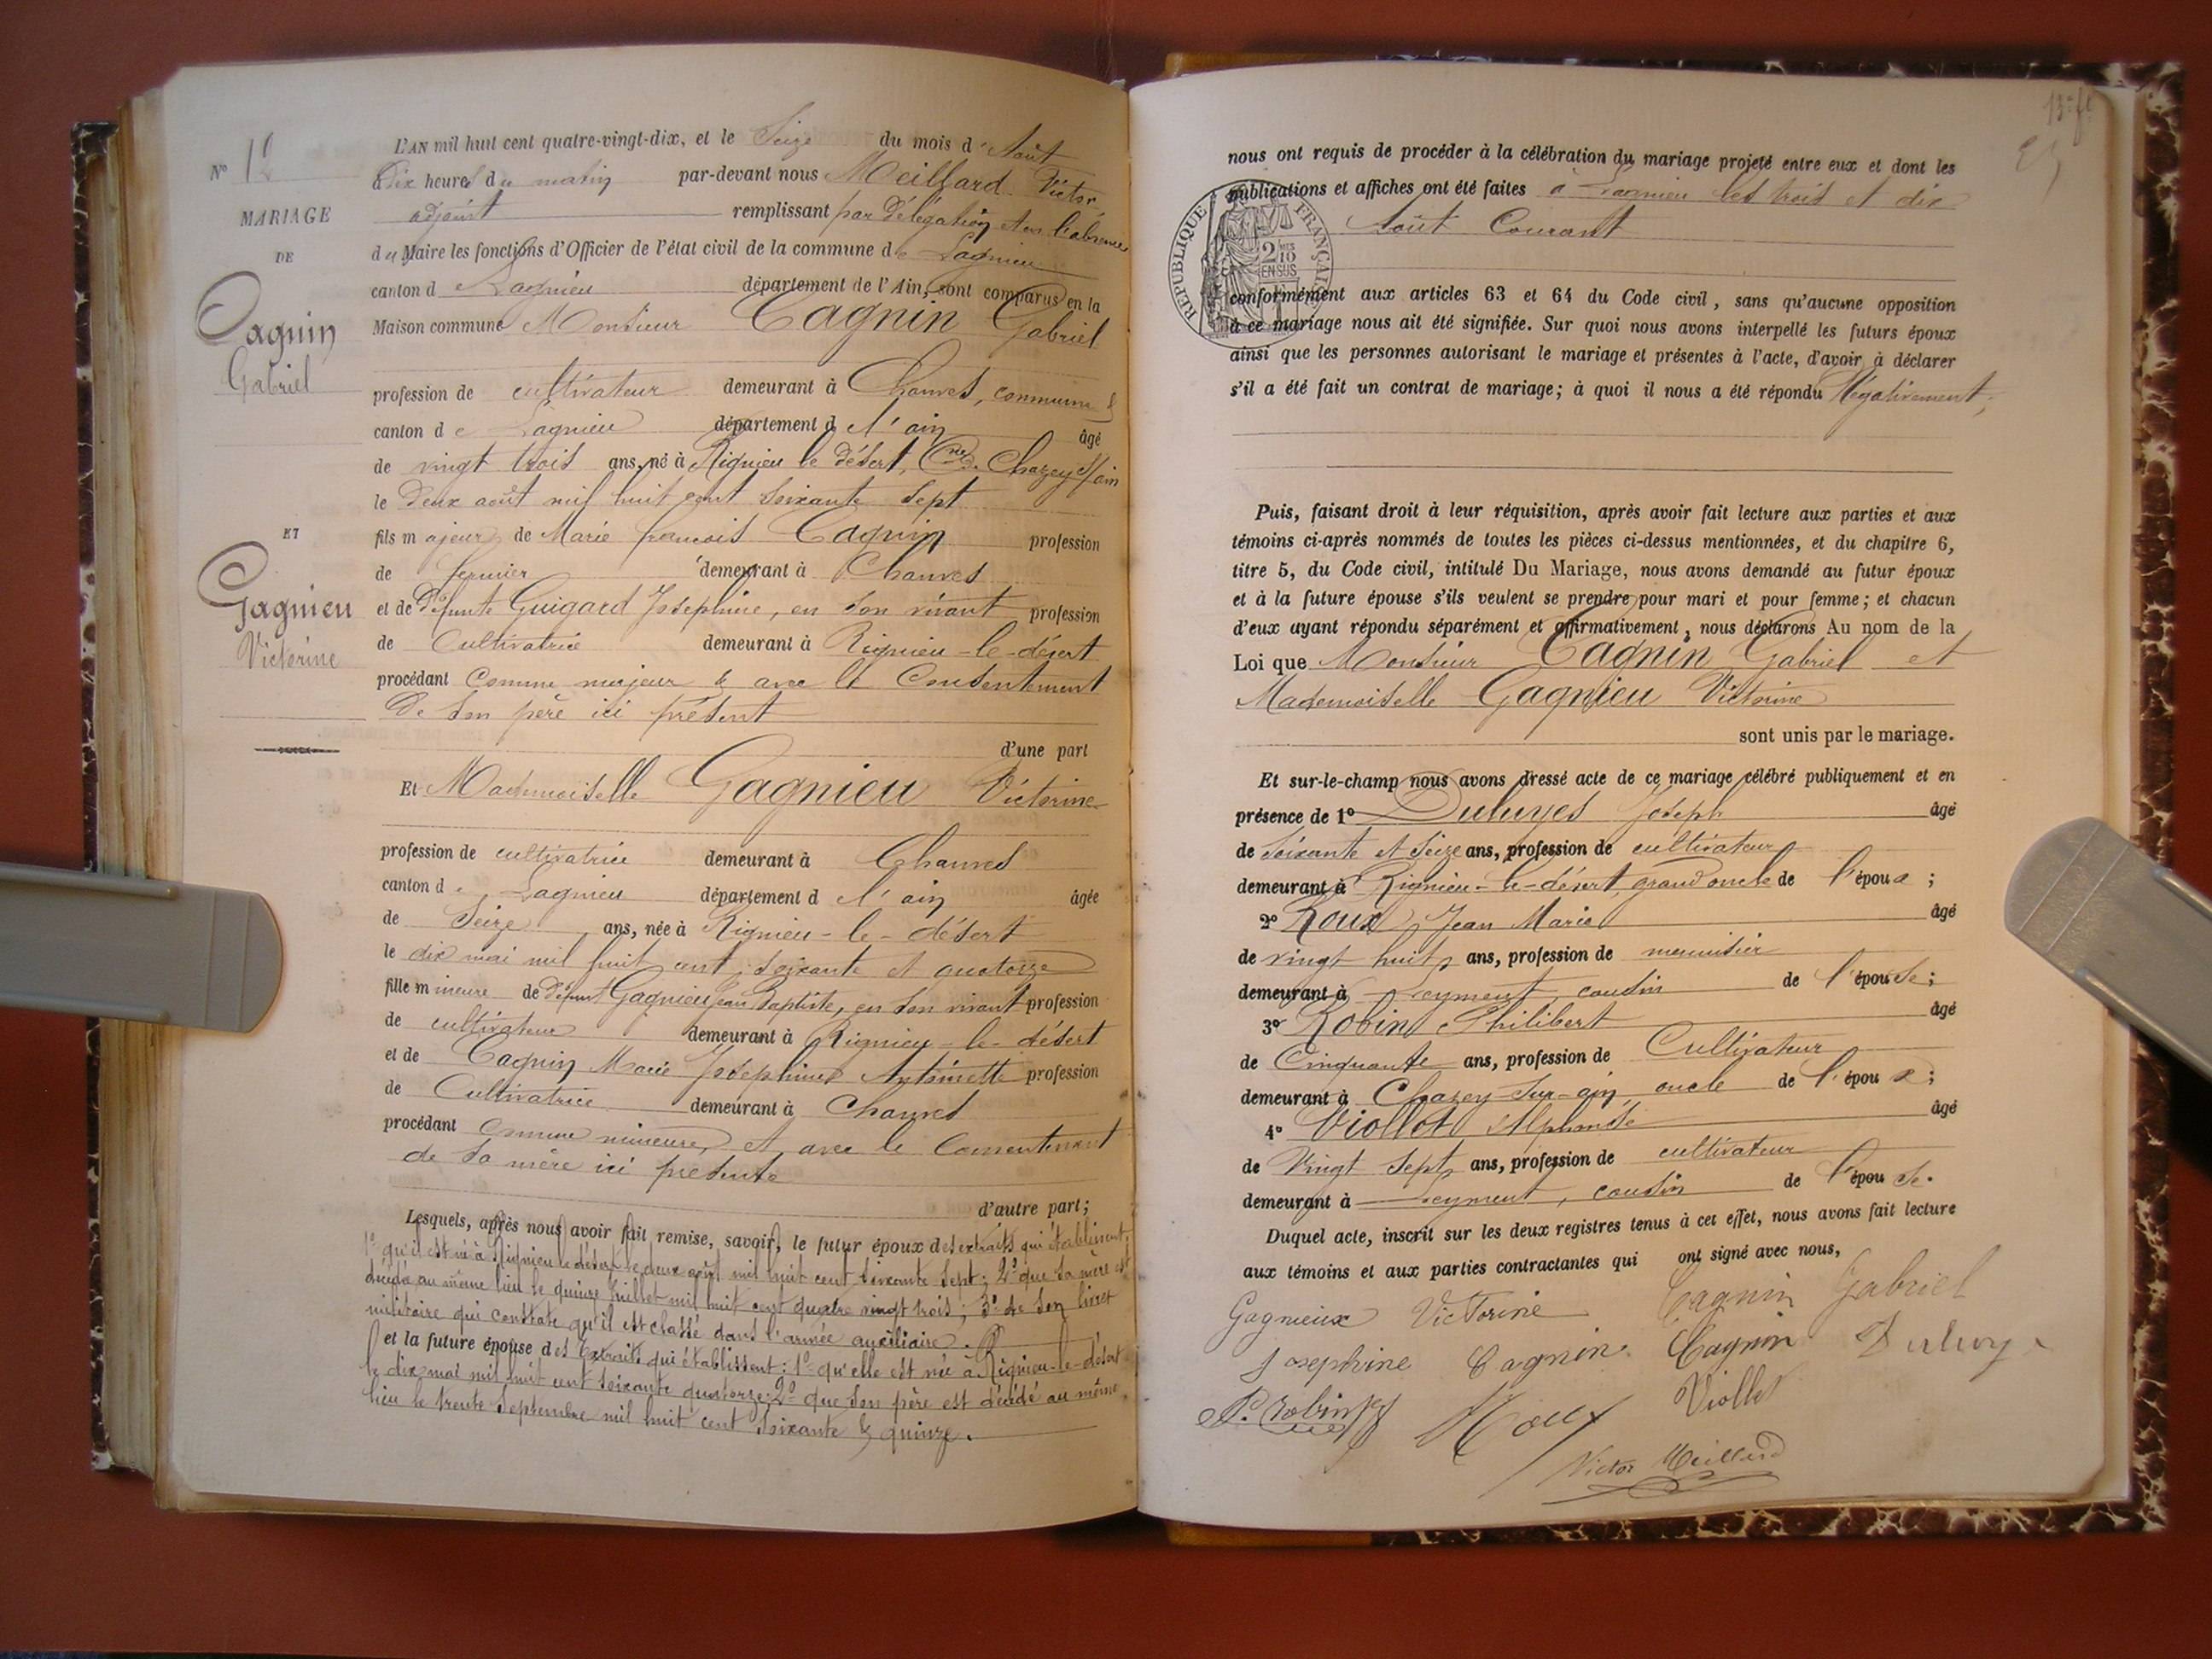 N° 12
MARIAGE
DE
Cagnin
Gabriel
ET
Gagnieu
Victorine
L'AN mil huit cent quatre-vingt-dix, et le Seize du mois d'Août
à dix heures du matin par-devant nous Meillard Victor
adjoint remplissant par délégation et en l'absence
du Maire les fonctions d'Officier de l'état civil de la commune de Lagnieu
canton de Lagnieu département de l'Ain, sont comparus en la
Maison commune Monsieur Cagnin Gabriel
profession de cultivateur demeurant à Chanves, commune &
canton de Lagnieu département de l'ain âgé
de vingt trois ans, né à Rignieu le désert, Cne de Chazey s/ain
le deux août mil huit cent soixante sept
fils majeur de Marie francois Cagnin profession
de fermier demeurant à Chanves
et de défunte Guigard Joséphine, en son vivant profession
de Cultivatrice demeurant à Rignieu-le-désert
procédant comme majeur & avec le Consentement
de son père ici présent
d'une part
Et Mademoiselle Gagnieu Victorine
profession de cultivatrice demeurant à Chanves
canton de Lagnieu département de l'ain âgée
de Seize ans, née à Rignieu-le-désert
le dix mai mil huit cent soixante et quatorze
fille mineure de défunt Gagnieu Jean Baptiste, en son vivant profession
de cultivateur demeurant à Rignieu-le-désert
et de Cagnin Marie Joséphine Antoinette profession
de Cultivatrice demeurant à Chanves
procédant comme mineure, et avec le Consentement
de sa mère ici présente
d'autre part;
Lesquels, après nous avoir fait remise, savoir, le futur époux des extraits qui établissent:
1° qu'il est né à Rignieu le désert le deux août mil huit cent soixante sept; 2° que sa mère est
décédé au même lieu le quinze Juillet mil huit cent quatre vingt trois; 3° de son livret
militaire qui constate qu'il est classé dans l'armée auxiliaire.
et la future épouse des Extraits qui établissent: 1° qu'elle est née à Rignieu-le-désert
le dix mai mil huit cent soixante quatorze; 2° que son père est décédé au même
lieu le trente septembre mil huit cent soixante & quinze.
13e ft
nous ont requis de procéder à la célébration du mariage projeté entre eux et dont les
publications et affiches ont été faites à Lagnieu les trois et dix
Août Courant
RÉPUBLIQUE FRANÇAISE
2 MES
10
EN SUS
conformément aux articles 63 et 64 du Code civil, sans qu'aucune opposition
à ce mariage nous ait été signifiée. Sur quoi nous avons interpellé les futurs époux
ainsi que les personnes autorisant le mariage et présentes à l'acte, d'avoir à déclarer
s'il a été fait un contrat de mariage; à quoi il nous a été répondu Négativement;
Puis, faisant droit à leur réquisition, après avoir fait lecture aux parties et aux
témoins ci-après nommés de toutes les pièces ci-dessus mentionnées, et du chapitre 6,
titre 5, du Code civil, intitulé Du Mariage, nous avons demandé au futur époux
et à la future épouse s'ils veulent se prendre pour mari et pour femme; et chacun
d'eux ayant répondu séparément et affirmativement, nous déclarons Au nom de la
Loi que Monsieur Cagnin Gabriel et
Mademoiselle Gagnieu Victorine
sont unis par le mariage.
Et sur-le-champ nous avons dressé acte de ce mariage célébré publiquement et en
présence de 1° Duluyes Joseph âgé
de soixante et seize ans, profession de cultivateur
demeurant à Rignieu-le-désert, grand oncle de l'époux;
2° Roux Jean Marie âgé
de vingt huit ans, profession de menuisier
demeurant à Leyment, cousin de l'épouse;
3° Robin Philibert âgé
de Cinquante ans, profession de Cultivateur
demeurant à Chazey-sur-ain, oncle de l'époux;
4° Viollot Alphonse âgé
de Vingt Sept ans, profession de cultivateur
demeurant à Leyment, cousin de l'épouse.
Duquel acte, inscrit sur les deux registres tenus à cet effet, nous avons fait lecture
aux témoins et aux parties contractantes qui ont signé avec nous,
Gagnieux Victorine Cagnin Gabriel
Josephine Cagnin Cagnin Duluye
P. Robin Roux Viollet
Victor Meillard